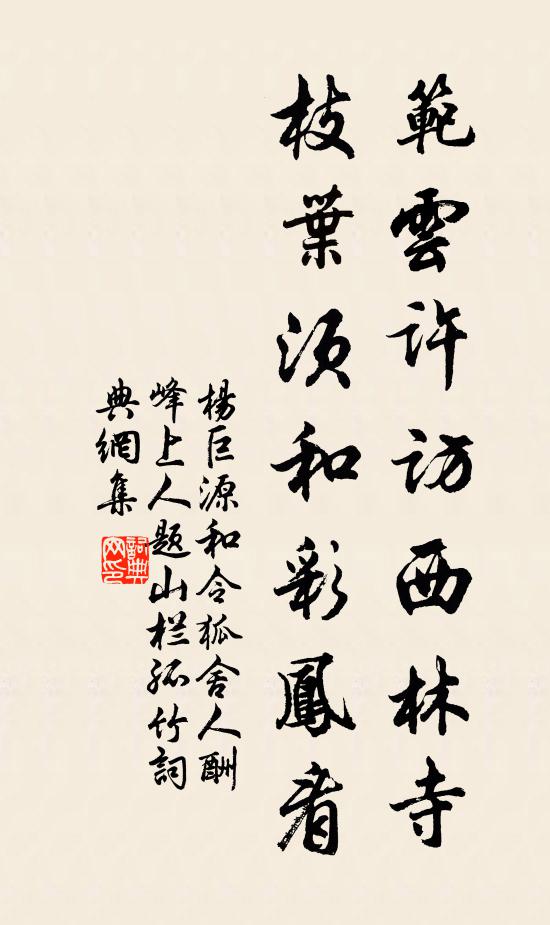 範雲許訪西林寺
枝葉須和彩鳳看
楊巨源和令狐舍人酬
峰上人题山栏孤竹詞
典網集
詞典
网印